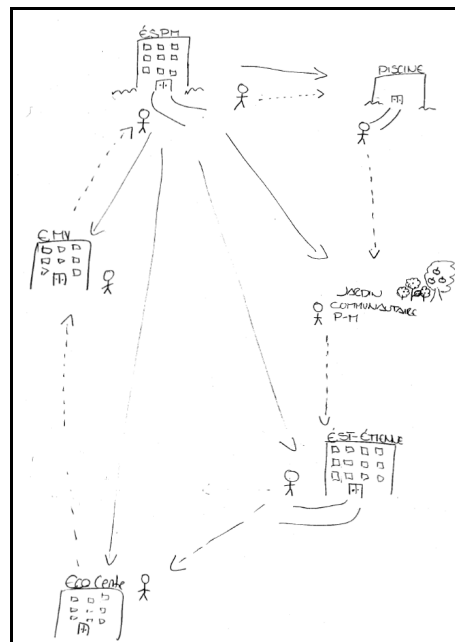 ÉSPM
PISCINE
É.MV
JARDIN
COMMUNAUTAIRE
P-M
ÉST-ÉTIENNE
ECO Centre